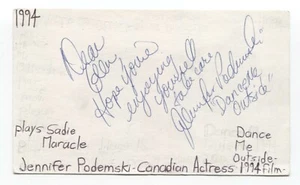 1994
Dear
Glen
Hope you're
enjoying
yourself
take care
Jennifer Podemski
"Dance me
Outside"
plays Sadie
Maracle
Dance
Me
Outside-
Jennifer Podemski-Canadian Actress 1994 Film-